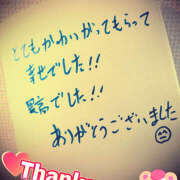 とてもかわいがってもらって
幸せでした!!
最高でした!!
ありがとうございました
Thank